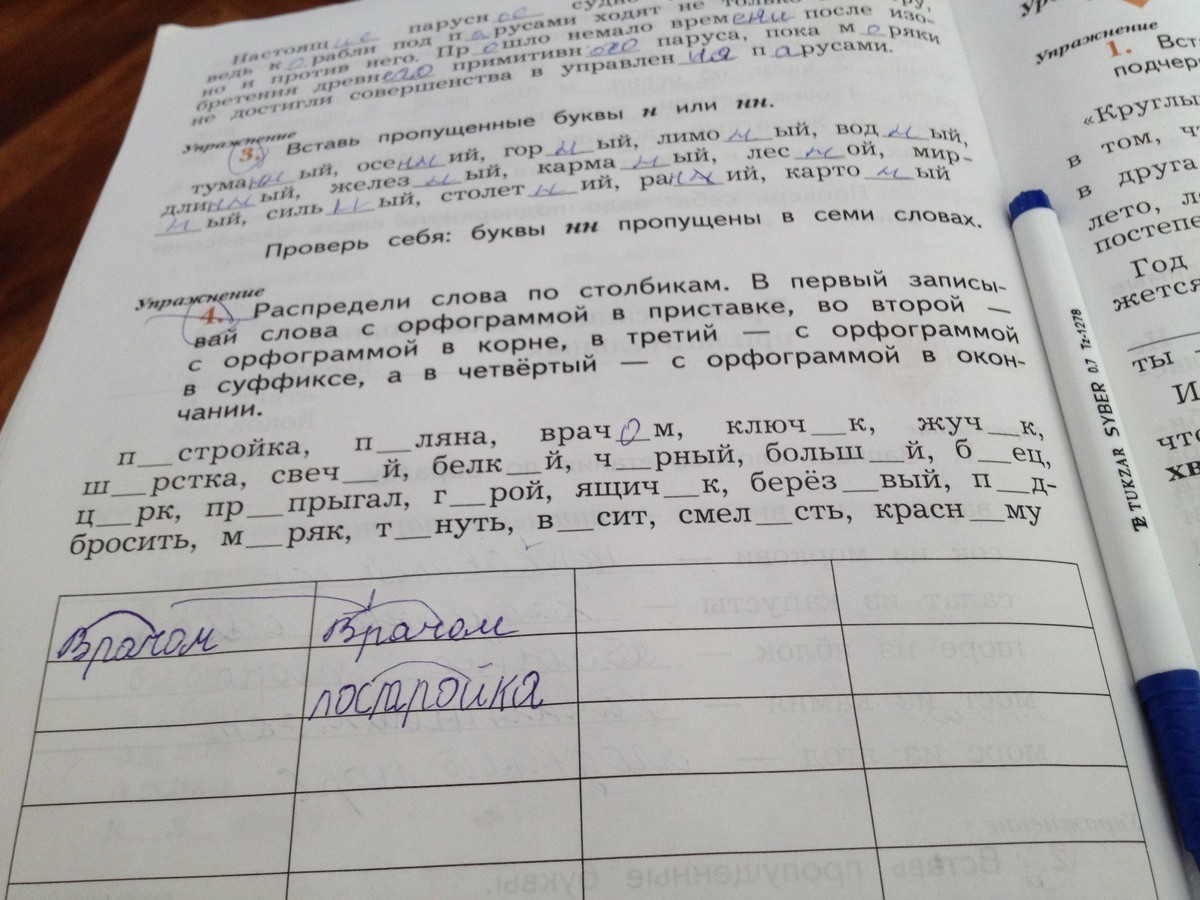 парусное
Настоящие
ведь корабли под парусами ходят не только
но и против него. Прошло немало времени после изо-
бретения древнего примитивного паруса, пока моряки
не достигли совершенства в управления парусами.
Упражнение
3. Вставь пропущенные буквы н или нн.
туманный, осенний, горный, лимоный, водный,
длинный, железный, карманый, лесной, мир-
ный, сильный, столетний, ранний, картоный
Проверь себя: буквы нн пропущены в семи словах.
Упражнение
4. Распредели слова по столбикам. В первый записы-
вай слова с орфограммой в приставке, во второй —
с орфограммой в корне, в третий — с орфограммой
в суффиксе, а в четвёртый — с орфограммой в окон-
чании.
п__стройка, п__ляна, врачом, ключ__к, жуч__к,
ш__рстка, свеч__й, белк__й, ч__рный, больш__й, б__ец,
ц__рк, пр__прыгал, г__рой, ящич__к, берёз__вый, п__д-
бросить, м__ряк, т__нуть, в__сит, смел__сть, красн__му
Врачом Врачом
постройка
Упражнение
1. Вст
подчер
«Круглы
в том, ч
в друга
лето, л
постепе
Год
жется
ты —
И
что
хв
TUKZAR SYBER 0.7 Tz-1278